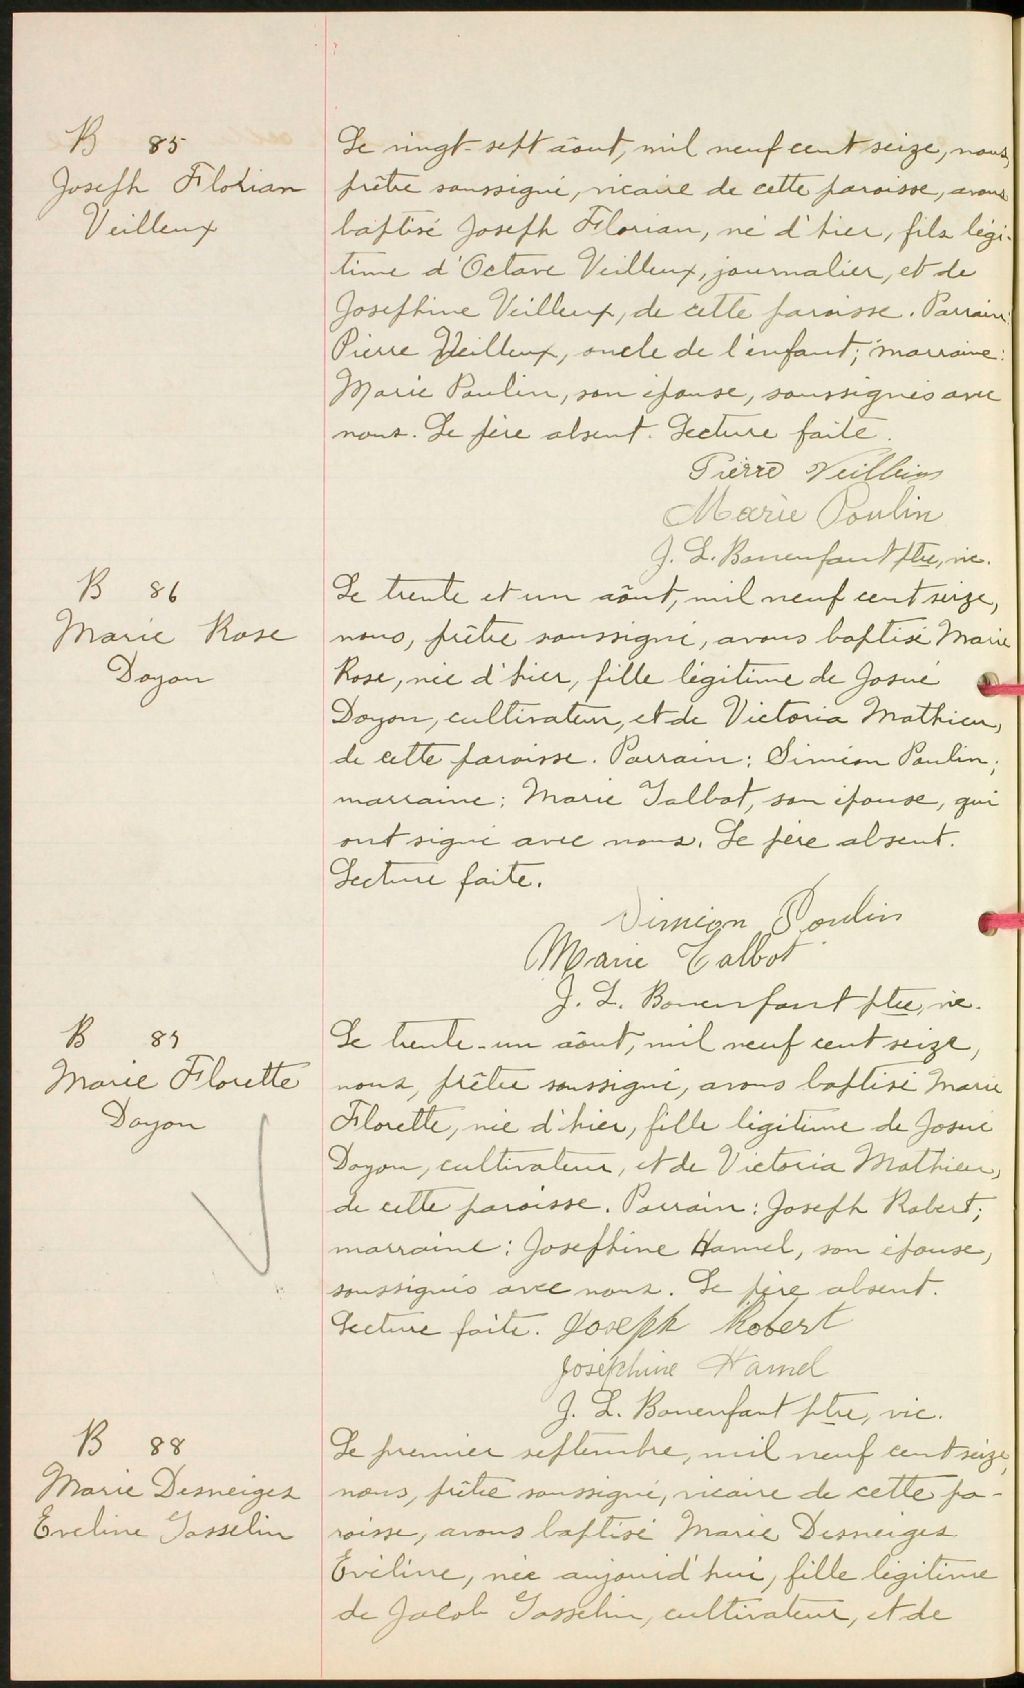 B 85
Joseph Florian
Veilleux
Le vingt-sept août, mil neuf cent seize, nous,
prêtre soussigné, vicaire de cette paroisse, avons
baptisé Joseph Florian, né d'hier, fils légi-
time d'Octave Veilleux, journalier, et de
Joséphine Veilleux, de cette paroisse. Parrain:
Pierre Veilleux, oncle de l'enfant; marraine:
Marie Poulin, son épouse, soussignés avec
nous. Le père absent. Lecture faite.
Pierre Veilleux
Marie Poulin
J. L. Bonenfant ptre, vic.
B 86
Marie Rose
Doyon
Le trente et un août, mil neuf cent seize,
nous, prêtre soussigné, avons baptisé Marie
Rose, née d'hier, fille légitime de Josué
Doyon, cultivateur, et de Victoria Mathieu,
de cette paroisse. Parrain: Siméon Poulin;
marraine: Marie Talbot, son épouse, qui
ont signé avec nous. Le père absent.
Lecture faite.
Siméon Poulin
Marie Talbot
J. L. Bonenfant ptre, vic.
B 87
Marie Florette
Doyon
Le trente-un août, mil neuf cent seize,
nous, prêtre soussigné, avons baptisé Marie
Florette, née d'hier, fille légitime de Josué
Doyon, cultivateur, et de Victoria Mathieu,
de cette paroisse. Parrain: Joseph Robert;
marraine: Joséphine Hamel, son épouse,
soussignés avec nous. Le père absent.
Lecture faite. Joseph Robert
Joséphine Hamel
J. L. Bonenfant ptre, vic.
B 88
Marie Desneiges
Eveline Gosselin
Le premier septembre, mil neuf cent seize,
nous, prêtre soussigné, vicaire de cette pa-
roisse, avons baptisé Marie Desneiges
Evéline, née aujourd'hui, fille légitime
de Jacob Gosselin, cultivateur, et de